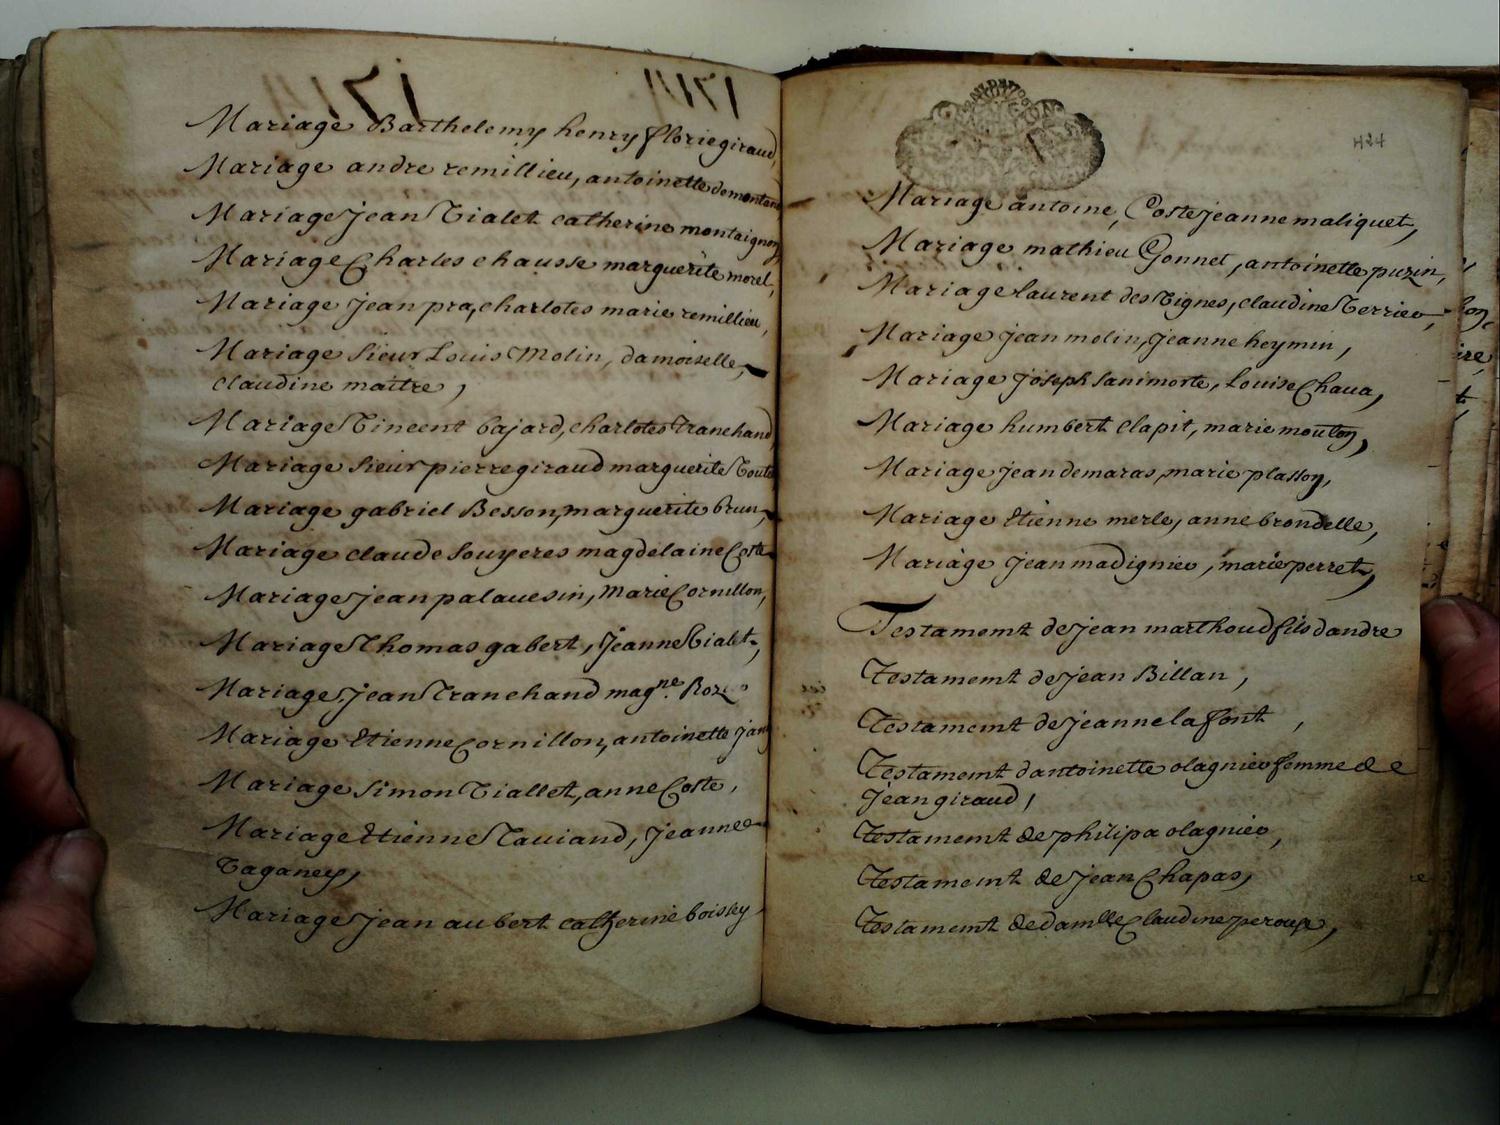 Mariage Barthelemy henry florie giraud,
Mariage andre remillieu, antoinette demontand
Mariage jean Vialet catherine montaignon,
Mariage Charles chausse marguerite morel,
Mariage jean pra, charlotes marie remillieu,
Mariage sieur Louis Molin, damoiselle,
claudine maitre,
Mariage Vincent bajard, charlotes Tranchand,
Mariage sieur pierre giraud marguerite
Mariage gabriel Besson, marguerite brun,
Mariage claude souyeres magdelaine Coste
Mariage jean palauesin, Marie Cornillon,
Mariage Thomas gabert, Jeanne Vialet,
Mariage Jean Tranchand magne.
Mariage Etienne Cornillon, antoinette
Mariage simon Viallet, anne Coste,
Mariage Etienne Tauiand, Jeanne
Vaganey,
Mariage Jean aubert catherine boissey
424
Mariage antoine, Coste jeanne maliquet,
Mariage mathieu Gonnet, antoinette puzin,
Mariage laurent des Vignes, claudine Verrier,
Mariage jean molin, jeanne heymin,
Mariage joseph sanimorte, Louise Chaua,
Mariage humbert clapit, marie moulon,
Mariage jean demaras, marie plasson,
Mariage Etienne merle, anne brondelle,
Mariage Jean madignier, marie perret,
Testament de jean marthoud fils dandre
Testament de jean Billan,
Testament de jeanne lafont,
Testament dantoinette olagnier femme de
Jean giraud,
Testament de philipa olagnier,
Testament de Jean Chapas,
Testament de damlle Claudine peroux,